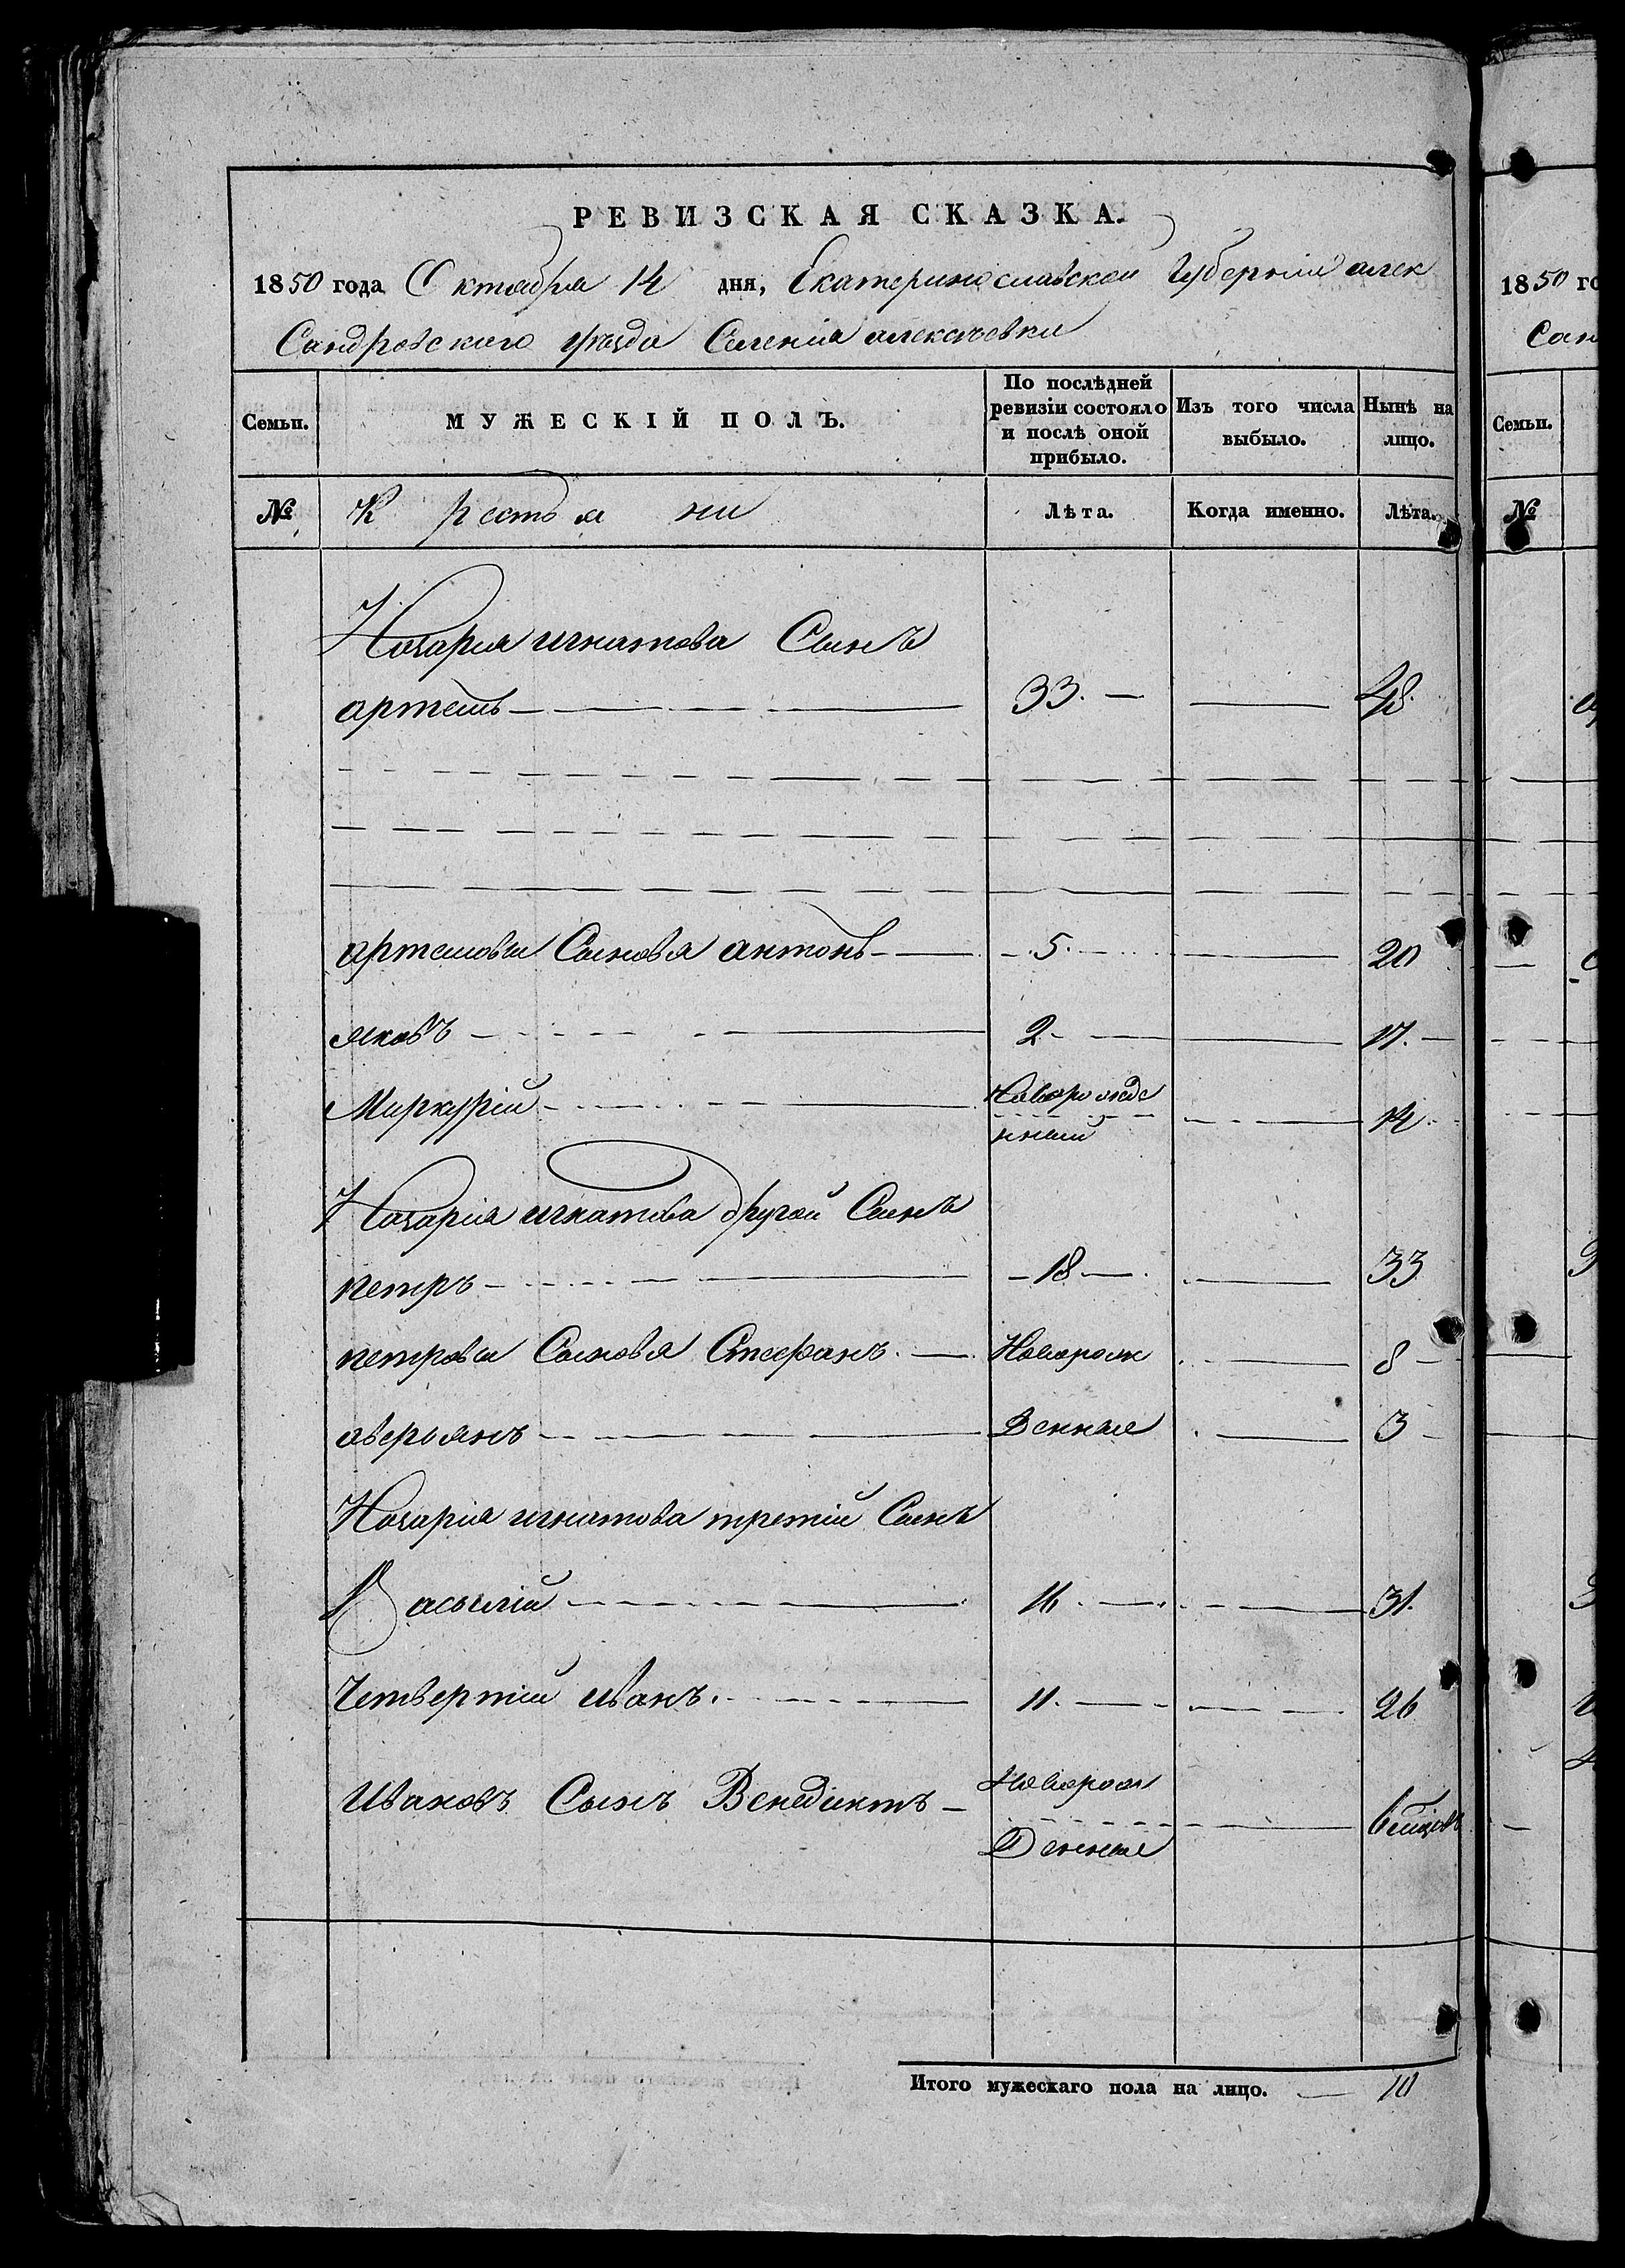 РЕВИЗСКАЯ СКАЗКА.
1850 года Октября 14 дня, Екатеринославской Губернiи алек
Сандровского уѣзда Селенiя алексѣевки
Семьи.
МУЖЕСКІЙ ПОЛЪ.
По послѣдней ревизіи состояло и послѣ оной прибыло.
Изъ того числа выбыло.
Нынѣ на лицо.
№ Крестьяни Лѣта. Когда именно. Лѣта.
Назария игнатова Сынъ
артемъ 33. 48.
артемовы Сыновья антонъ 5. 20
яковъ 2 17.
Меркурiй Новорожде 14
нный
Назарiя игнатова другой Сынъ
петръ 18 33
петровы Сыновья Стефанъ.Новорож 8
аверьянъ Денные 3
Назария игнатова третiй Сынъ
Васылiй 16 31.
Четвертiй иванъ. 11. 26
Ивановъ Сынъ Венедиктъ Новорож
Денные
Итого мужескаго пола на лицо. 10
1850 го
Сан
Семьи.
№